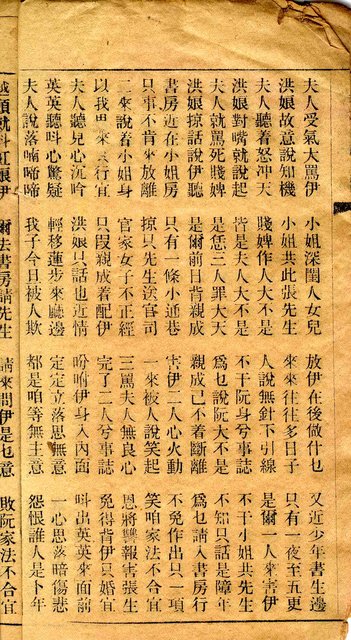 夫人受氣大罵伊　小姐深閨人女兒　放伊在後做什乜　又近少年書生邊
洪娘故意說知機　小姐共此張先生　來來往往多日子　只有一夜至五更
夫人聽着怒冲天　賤婢作人大不是　人說無針不引線　是爾一人來害伊
洪娘對嘴就說起　皆是夫人大不是　不干阮身兮事誌　不干小姐共先生
夫人就罵死賤婢　是恁三人罪大天　爲乜說阮大不是　不知只話是障年
洪娘掠話說伊聽　是爾前日背親成　親成已不着斷離　爲乜請入書房行
書房近在小姐房　只有一條小通巷　害伊二人心火動　不免作出只一項
只事不肯來放離　掠只先生送官司　一來被人說笑起　笑咱家法不合宜
二來說着小姐身　官家女子不正經　三罵夫人無良心　恩將讐報害張生
以我思來只行宜　只叚親成着配伊　完了二人兮事誌　免得背伊只婚宜
夫人聽見心沉吟　洪娘只話也近情　吩咐伊身入內面　呌出英英來面前
英英聽呌心驚疑　輕移蓮步來廳邊　定定立落思無意　一心思落暗傷悲
夫人說落喃啼啼　我子今日被人欺　都是咱等無主意　怨恨誰人是卜年
頭就呌紅娘伊　爾去書房請先生　請來問伊是乜意　敗阮家法不合宜